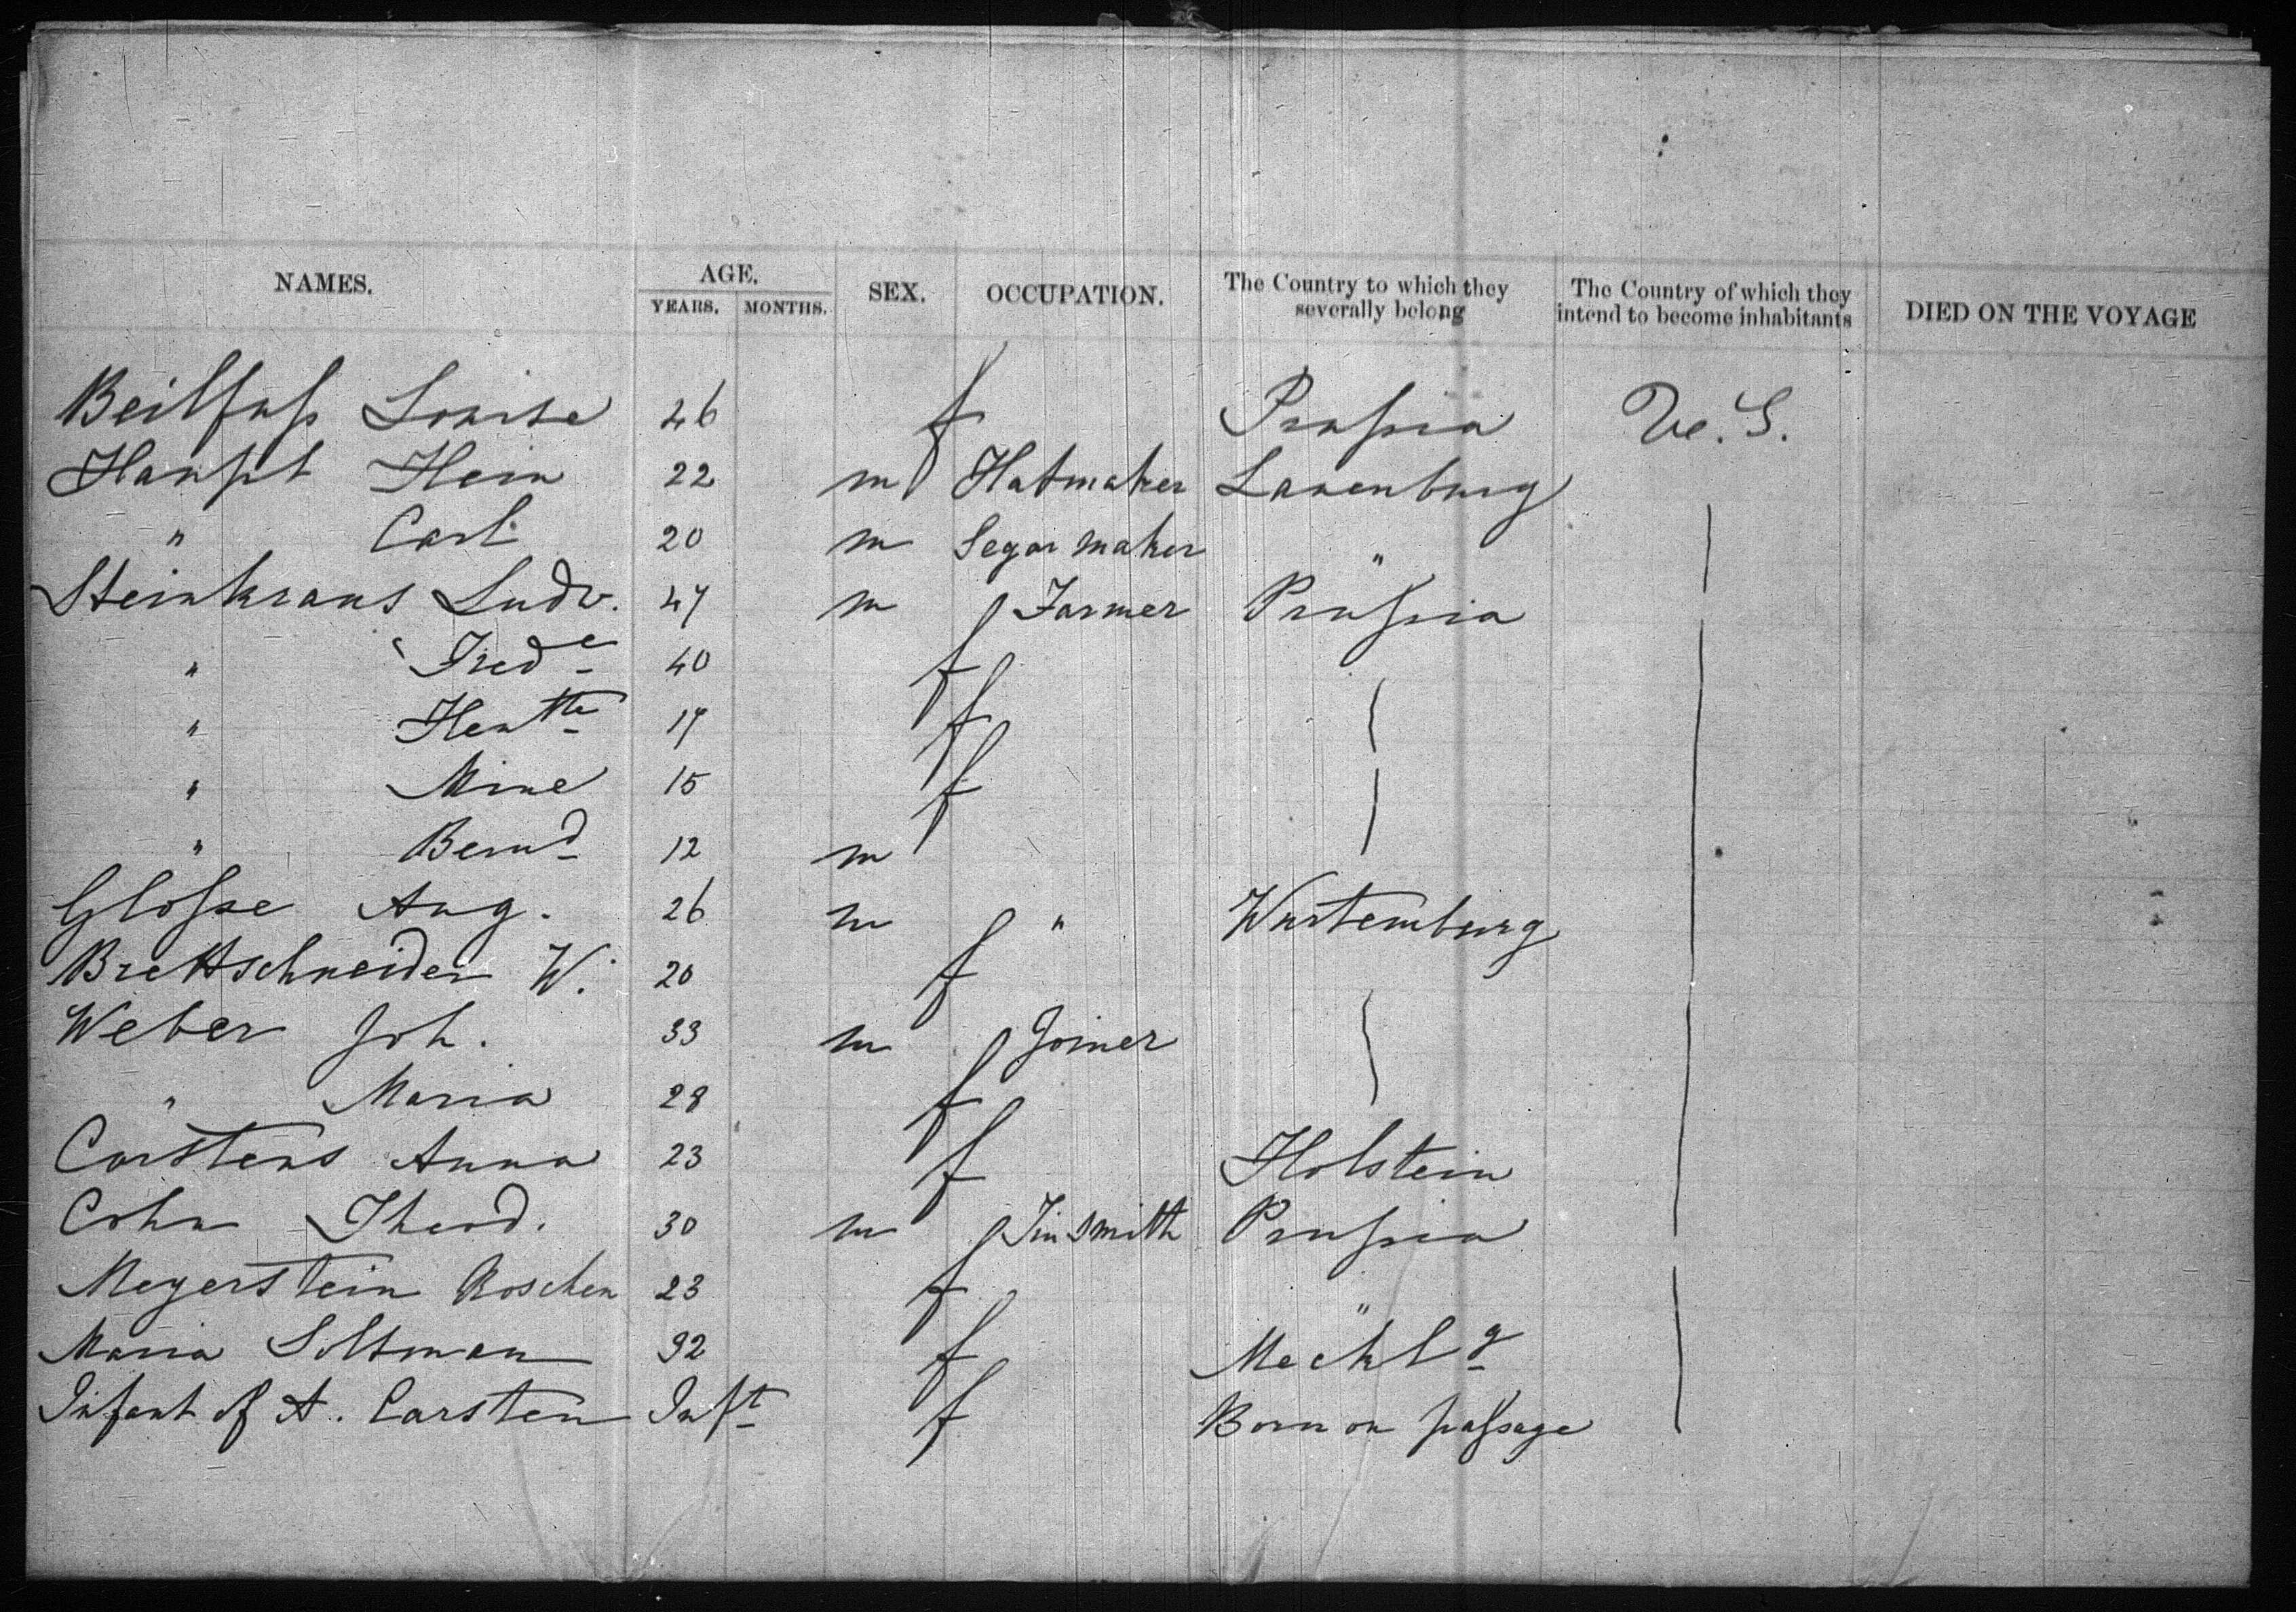 NAMES. AGE. SEX. OCCUPATION. The Country to which they severally belong The Country of which they intend to become inhabitants DIED ON THE VOYAGE
YEARS. MONTHS.
Beilfuſs Louise 26 f Pruſsia U. S.
Haupt Hein 22 m Hatmaker Lauenburg
" Carl 20 m Segar maker "
Steinkraus Ludw. 47 m Farmer Pruſsia
" Fredᵉ 40 f
" Henᵗᵗᵉ 17 f
" Mine 15 f
" Bernᵈ 12 m
Gloſse Aug. 26 m " Wurtemburg
Brettschneider W. 20 f
Weber Joh. 33 m Joiner
" Maria 28 f
Carstens Anna 23 f Holstein
Cohn Theod. 30 m Tinsmith Pruſsia
Meyerstein Roschen 23 f "
Maria Soltman 32 f Mecklᵍ
Infant of A. Carsten Infᵗ f Born on paſsage